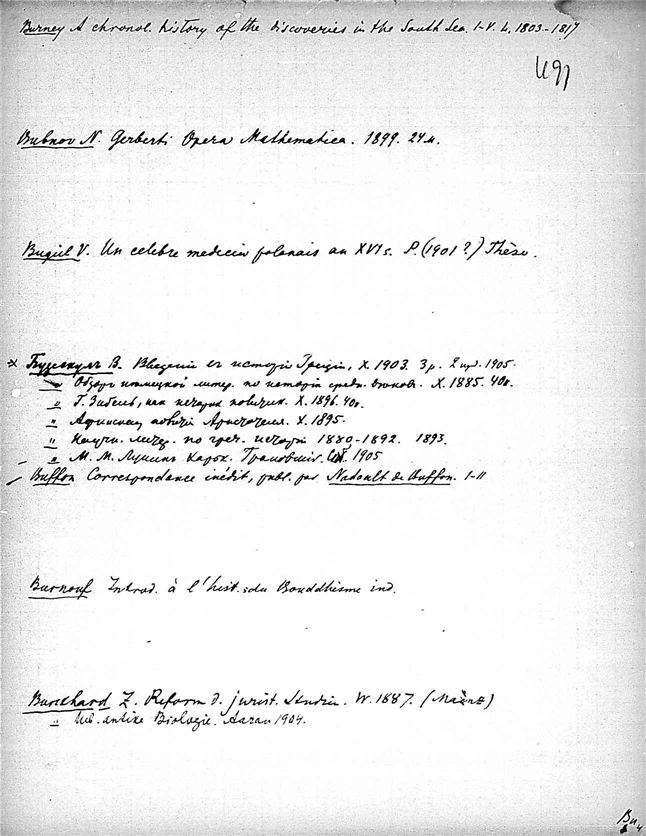 Burney A chronol. history of the discoveries in the South Sea. I-V. L, 1803-1817
491
Bubnov N. Gerberti Opera Mathematica. 1899. 24 м.
Bugiel V. Un celebre medecin polonais au XVI s. P. (1901?) Thèse.
× Бузескулъ В. Введеніе въ исторію Греціи, Х. 1903. 3 р. 2 изд. 1905.
Обзоръ нѣмецкой литер. по исторіи средн. вѣковъ. Х. 1885. 40 к.
" Г. Зибель, как историк политик. Х. 1896. 40 к.
" Аристотеля. Х. 1895.
" по греч. исторіи 1880-1892. 1893.
" М. М. Лунинъ Харьк. Грановскій. 1905
Buffon Correspondance inédit, publ. par Nadault de Buffon. I-II
Burnouf Introd. à l'hist. du Bouddhisme ind.
Burckhard Z. Reform d. jurist. Studien. W. 1887. (Mainz)
" Ueb. antike Biologie. Aarau 1904.
Bu